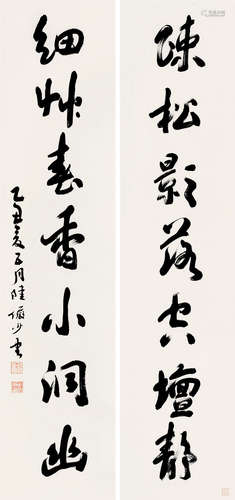 疎松影落空壇靜
細艸春香小洞幽
乙丑夏五月陸儼少書